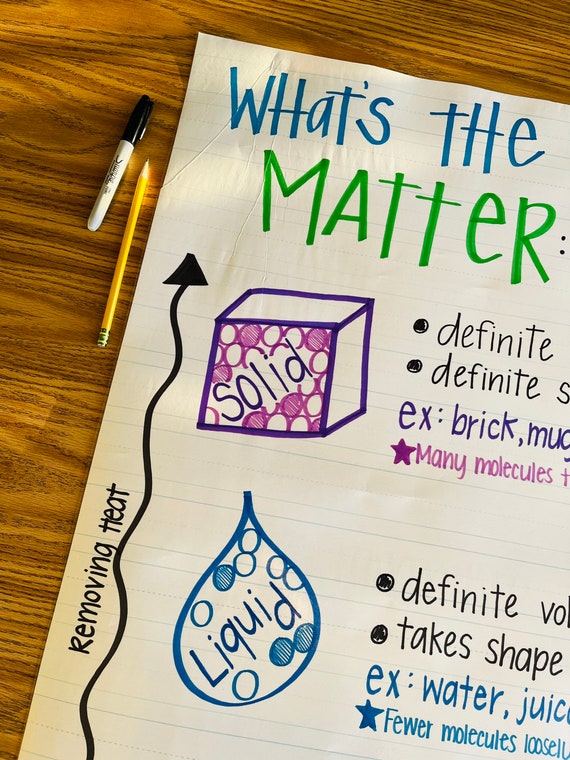 What's the
Matter:
Sharpie
Solid
definite
definite s
ex: brick, mug
Many molecules t
Removing Heat
Liquid
definite vol
takes shape
ex: water, juic
Fewer molecules loosel